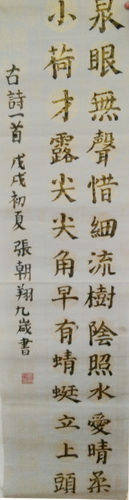 泉眼無聲惜細流樹陰照水愛晴柔
小荷才露尖尖角早有蜻蜓立上頭
古詩一首戊戌初夏張朝翔九歲書